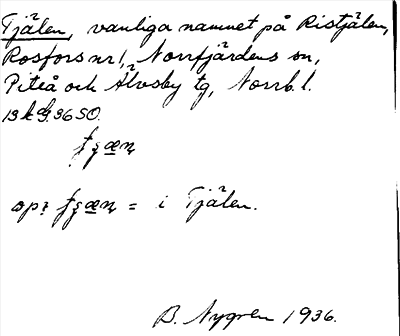 Tjälen, vanliga namnet på Ristjälen,
Rosfors nr 1, Norrfjärdens sn,
Piteå och Älvsby tg, Norrb. l.
36 SO.
= i Tjälen.
B. Nygren 1936.